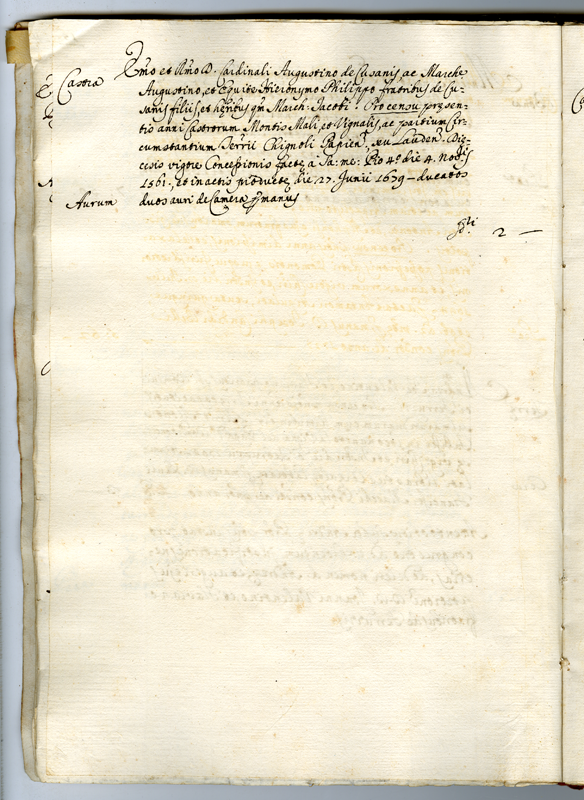 Emo et Rmo D. Cardinali Augustino de Cusanis, ac March:
Castra
Augustino, et Equite Hieronymo Philippo fratribus de Cu-
sanis filiis, et hdibus qm March: Jacobi: Pro censu praesen-
tis anni Castrorum Montis Mali, et Vignalis, ac partium Cir-
cumstantium Terrii Chignoli Papien, seu Lauden: Dię-
cesis vigore Concessionis factę a Sa: me: Pio 4º die 4. Nobris
1561. et in actis productę die 27. Junii 1679 – ducatos
Aurum
duos auri de Camera pmanus
2 —